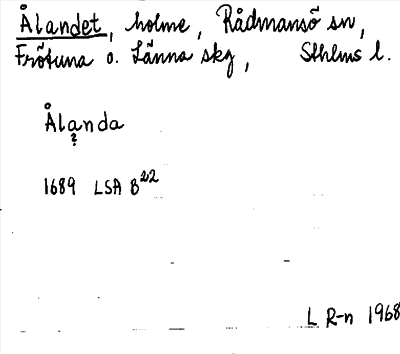 Ålandet, holme, Rådmansö sn,
Frötuna o. Länna skg, Sthlms l.
Ålanda
?
1689 LSA B²22
L R-n 1968